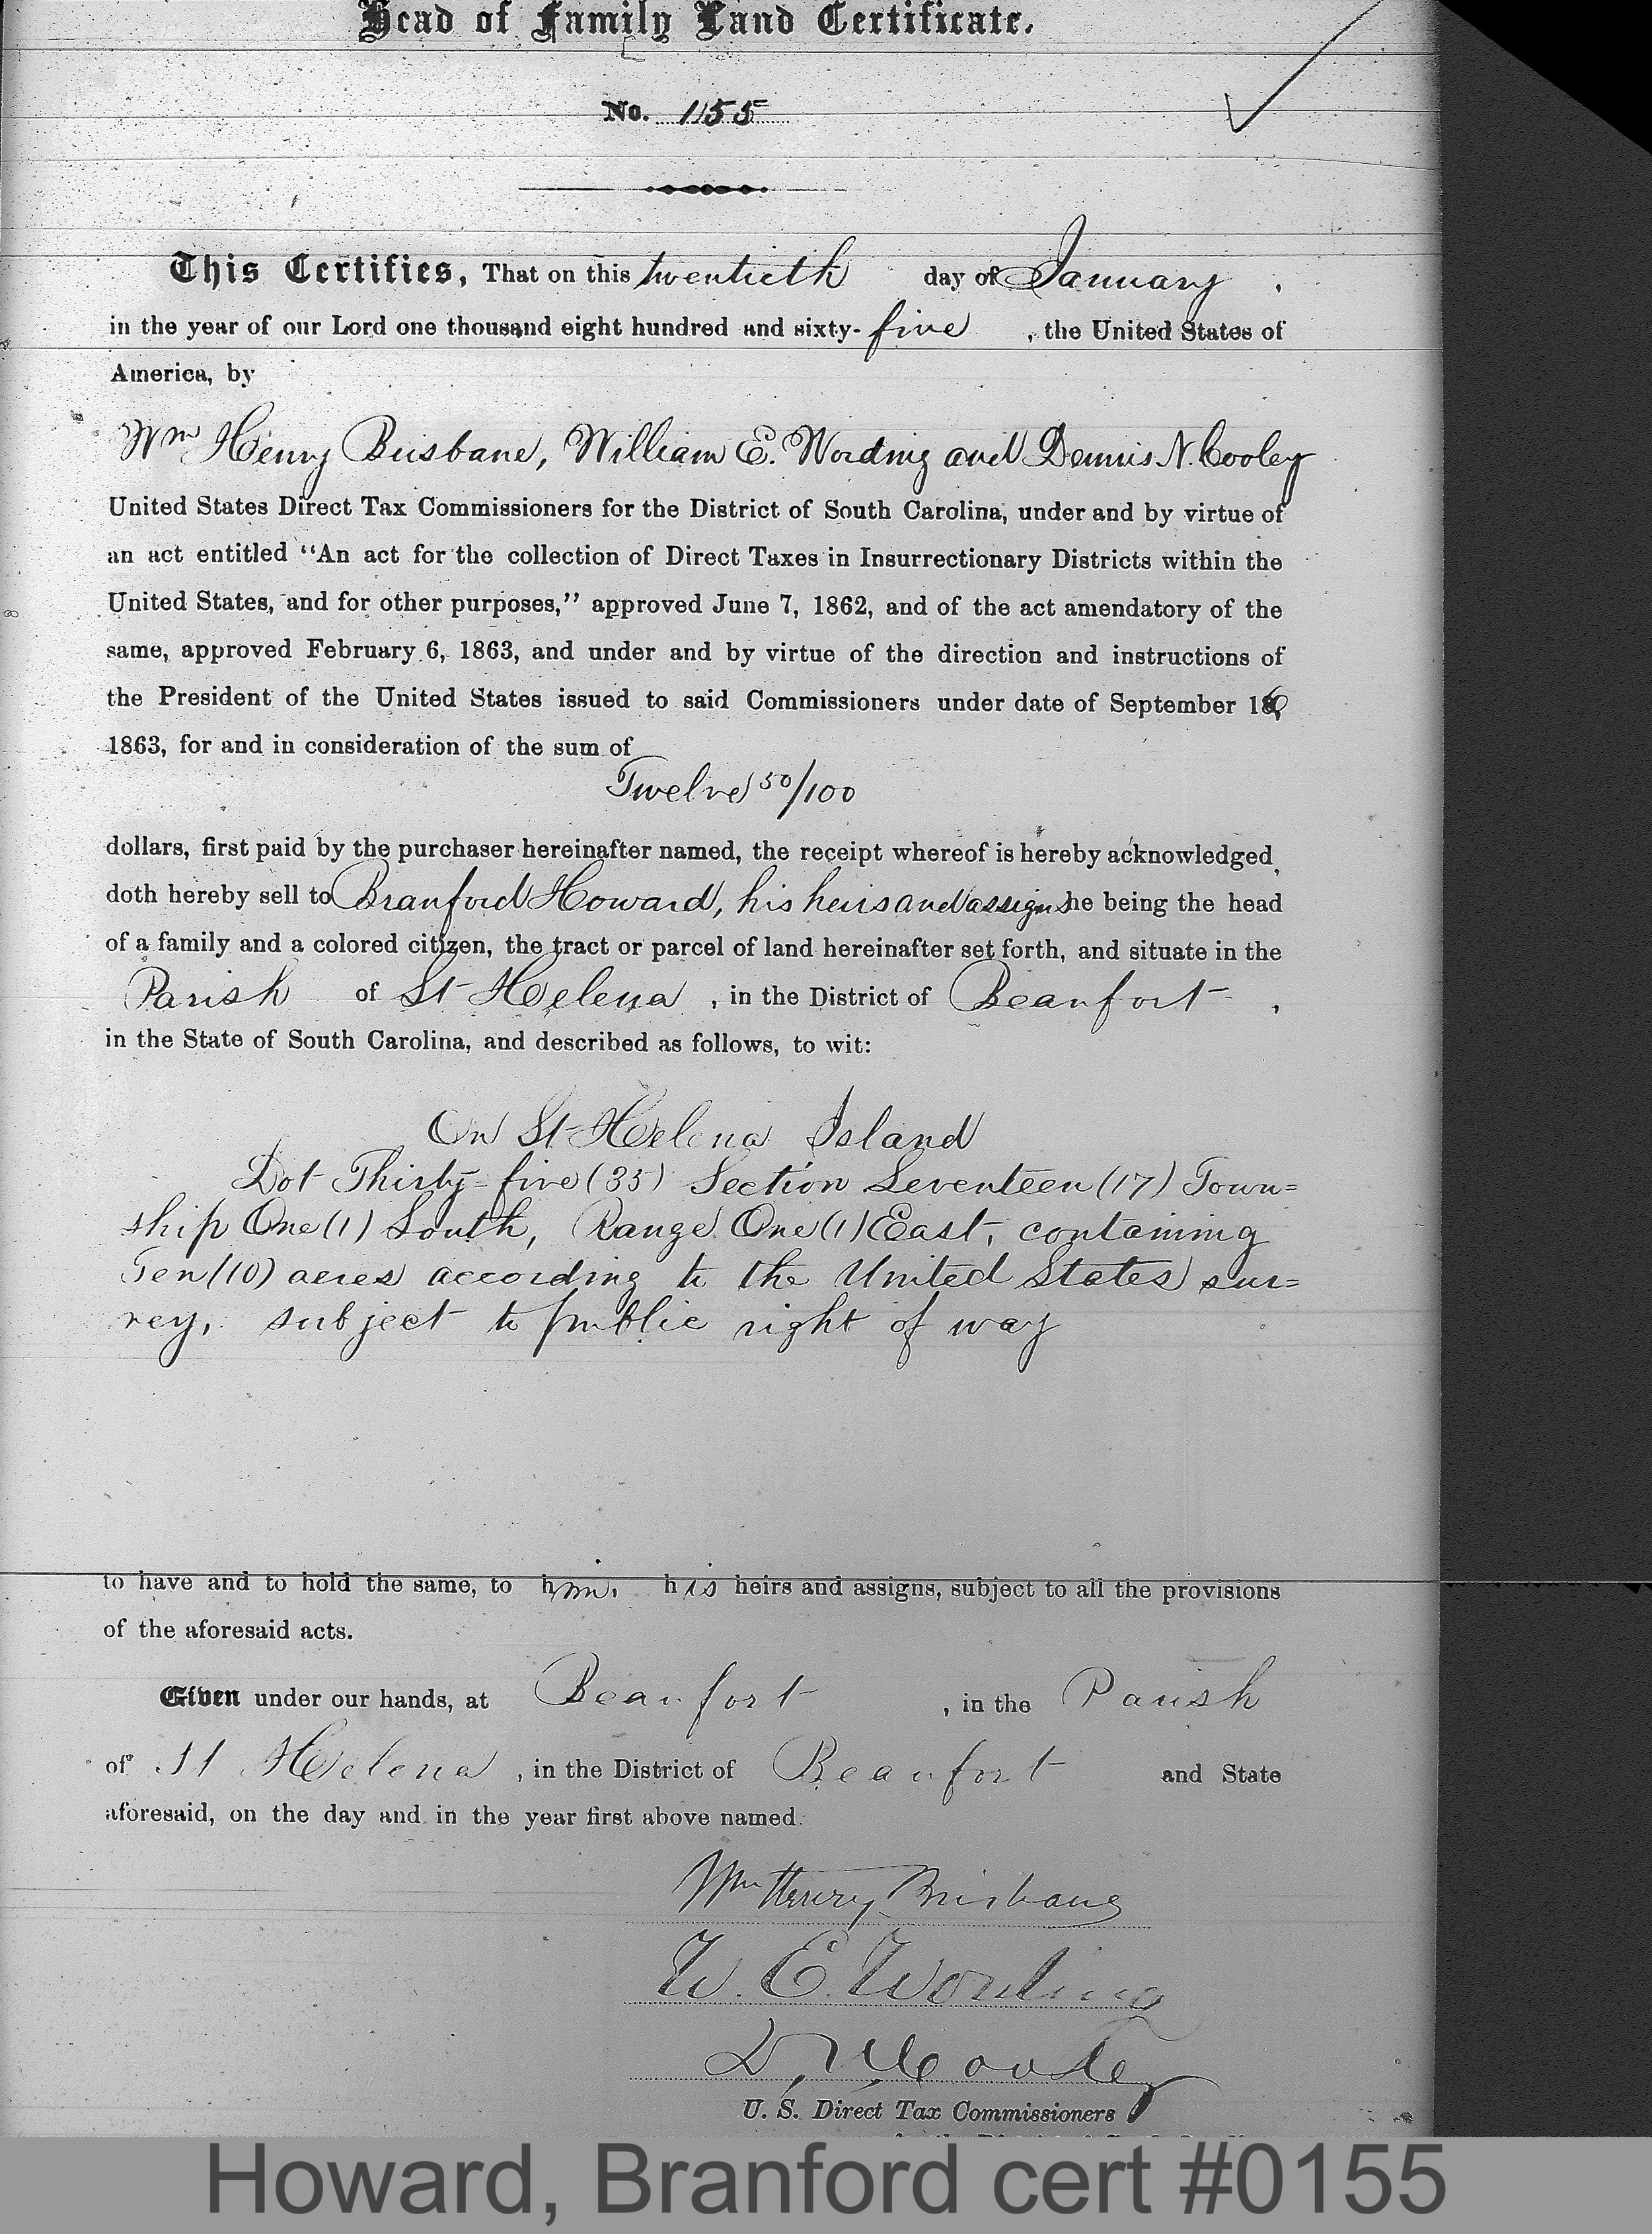 Head of Family Land Certificate.
No. 155
This Certifies, That on this twentieth day of January,
in the year of our Lord one thousand eight hundred and sixty-five, the United States of
America, by
Wm Henry Brisbane, William E. Wording and Dennis N. Cooley
United States Direct Tax Commissioners for the District of South Carolina, under and by virtue of
an act entitled "An act for the collection of Direct Taxes in Insurrectionary Districts within the
United States, and for other purposes," approved June 7, 1862, and of the act amendatory of the
same, approved February 6, 1863, and under and by virtue of the direction and instructions of
the President of the United States issued to said Commissioners under date of September 16,
1863, for and in consideration of the sum of
Twelve 50/100
dollars, first paid by the purchaser hereinafter named, the receipt whereof is hereby acknowledged,
doth hereby sell to Branford Howard, his heirs and assigns he being the head
of a family and a colored citizen, the tract or parcel of land hereinafter set forth, and situate in the
Parish of St Helena, in the District of Beaufort,
in the State of South Carolina, and described as follows, to wit:
On St Helena Island
Lot Thirty=five (35) Section Seventeen (17) Town=
ship One (1) South, Range One (1) East, containing
Ten (10) acres according to the United States sur=
vey, subject to public right of way
to have and to hold the same, to him, his heirs and assigns, subject to all the provisions
of the aforesaid acts.
Given under our hands, at Beaufort, in the Parish
of St Helena, in the District of Beaufort and State
aforesaid, on the day and in the year first above named.
Wm Henry Brisbane
W. E. Wording
D. N. Cooley
U. S. Direct Tax Commissioners
Howard, Branford cert #0155